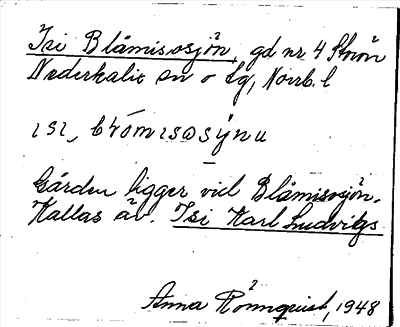 Isi Blåmisosjön, gd nr 4 Storön
Nederkalix sn o tg, Norrb. l
ɪsɪ, blómɪsɷsýnu
Gården ligger vid Blåmisosjön.
Kallas äv. Isi Karl Ludvigs
Anna Rönnquist, 1948